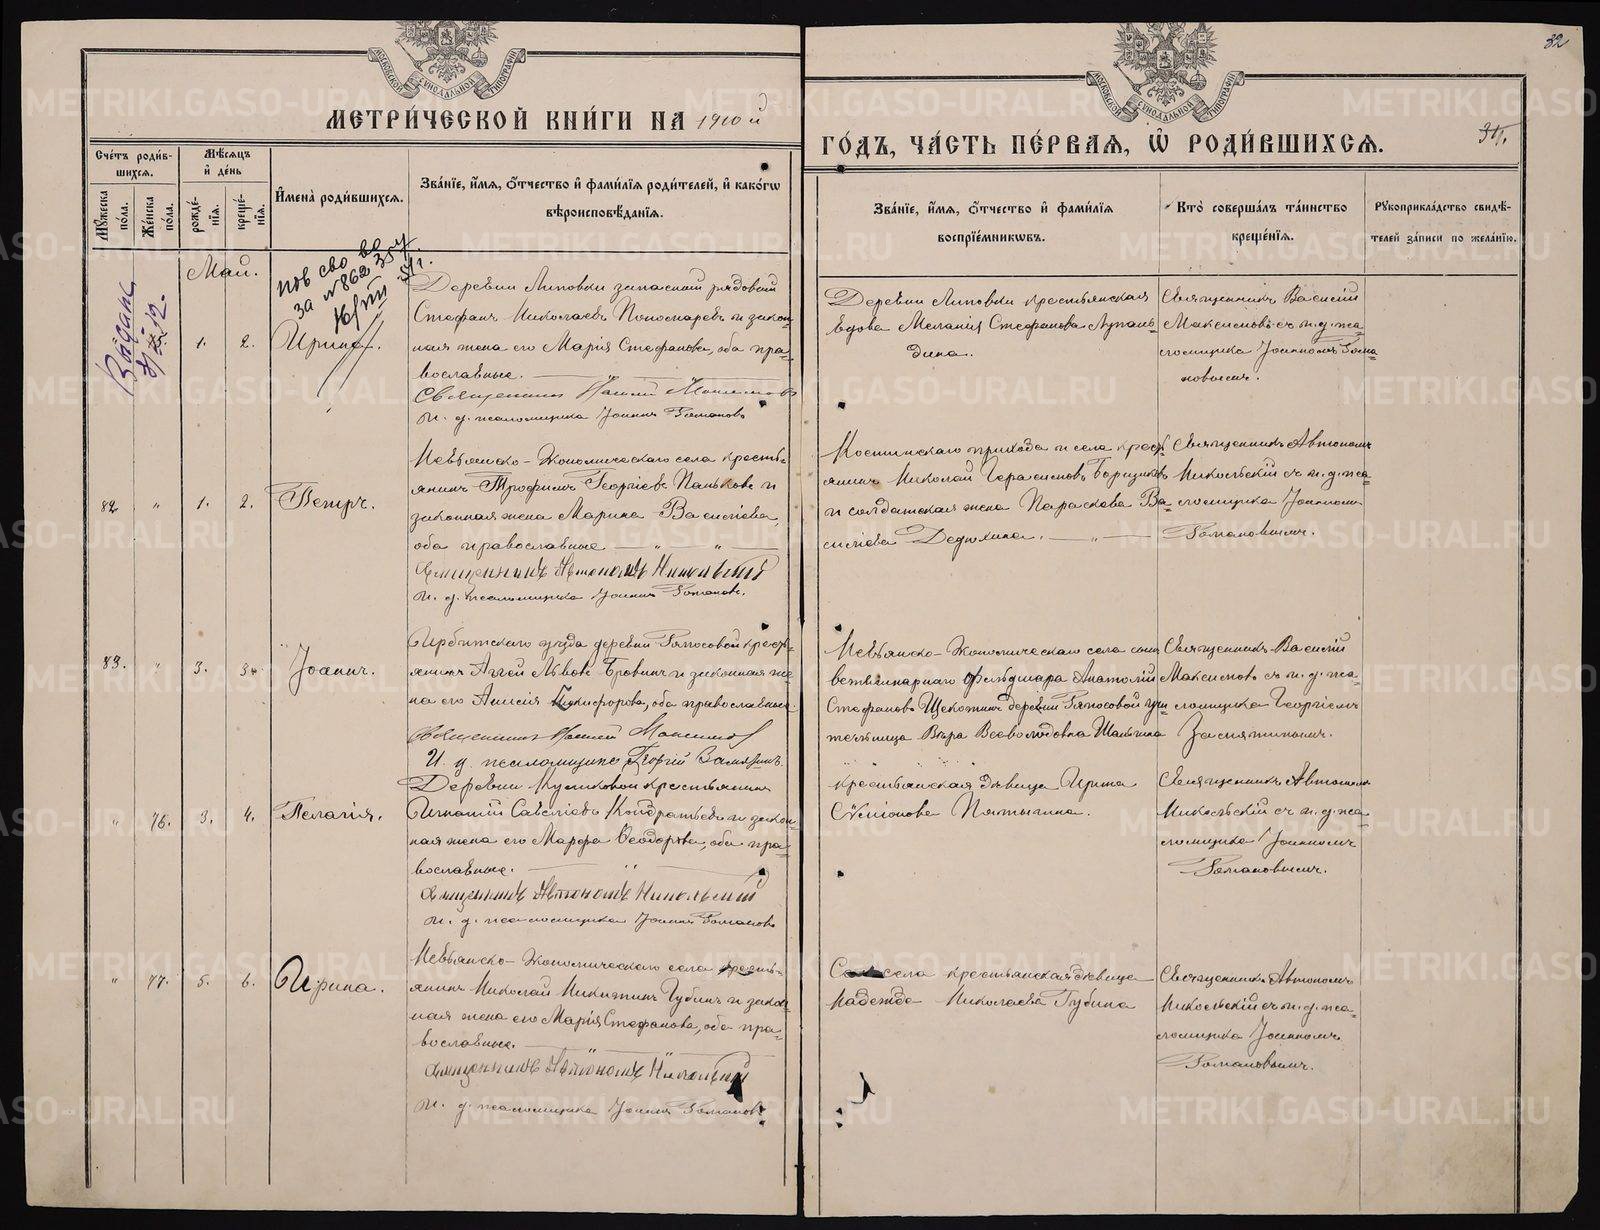 МЕТРИ́ЧЕСКОЙ КНИ́ГИ НА 1910 й
ГО́ДЪ, ЧА́СТЬ ПЕ́РВАЯ, Ѡ РОДИ́ВШИХСѦ.
32
Сче́тъ роди́в-
шихсѧ.
Мѣ́сѧцъ
и҆ де́нь
Мꙋ́жеска
пола.
Же́нска
по́ла.
рожде́-
нїѧ.
креще́-
нїѧ.
И҆мена̀ роди́вшихсѧ.
Зва́нїе, и҆́мѧ, ѻ҆́тчество и҆ фами́лїѧ роди́телей, и҆ како́гѡ
вѣроисповѣ́данїѧ.
Зва́нїе, и҆́мѧ, ѻ҆́тчество и҆ фами́лїѧ
воспрїе́мникѡвъ.
Кто̀ соверша́лъ та́инство
креще́нїѧ.
Рꙋкоприкла́дство свидѣ́-
телей за́писи по жела́нїю.
Май.
за №862
1. 2. Ирина.
Деревни Липовки запасный рядовой
Стефанъ Николаевъ Пономаревъ и закон-
ная жена его Марія Стефанова, оба пра-
вославные.
Священникъ Василій Максимовъ
И. д. псаломщика Іоаннъ Романовъ
Деревни Липовки крестьянская
вдова Меланія Стефанова
Священникъ Василій
Максимовъ съ и. д. пса-
ломщика Іоанномъ Рома-
новымъ.
82 " 1. 2. Петръ.
Невьянско-Экономическаго села кресть-
янинъ Трофимъ Георгіевъ Паньковъ и
законная жена Марина Василіева,
оба православные
Священникъ Автономъ Никольскій
И. д. псаломщика Іоаннъ Романовъ.
Костинскаго прихода и села кресть-
янинъ Николай Герасимовъ
и солдатская жена Параскева Ва-
силіева Дедюхина.
Священникъ Автономъ
Никольскій съ и. д. пса-
ломщика Іоанномъ
Романовымъ.
83. " 3. 3. Іоаннъ.
Ирбитскаго уѣзда деревни Ряпосовой кресть-
янинъ Аггей Львовъ Бровинъ и законная же-
на его Анисія Никифорова, оба православные
Священникъ Василій Максимовъ
И. д. псаломщика Георгій Замятинъ.
Невьянско-Экономическаго села сынъ
ветеринарнаго фельдшара Анатолій
Стефановъ Щекотинъ деревни Ряпосовой учи-
тельница Вѣра Всеволодовна
Священникъ Василій
Максимовъ съ и. д. пса-
ломщика Георгіемъ
Замятинымъ.
" 76. 3. 4. Пелагія.
Деревни Куликовой крестьянинъ
Игнатій Савеліевъ Кондратьевъ и закон-
ная жена его Марфа Ѳеодорова, оба пра-
вославные.
Священникъ Автономъ Никольскій
И. д. псаломщика Іоаннъ Романовъ
крестьянская дѣвица Ирина
Пятыгина.
Священникъ Автономъ
Никольскій съ и. д. пса-
ломщика Іоанномъ
Романовымъ.
" 77. 5. 6. Ирина.
Невьянско-Экономическаго села кресть-
янинъ Николай Никитинъ Губинъ и закон-
ная жена его Марія Стефанова, оба пра-
вославные.
Священникъ Автономъ Никольскій
И. д. псаломщика Іоаннъ Романовъ
села крестьянская дѣвица
Надежда Николаева Губина
Священникъ Автономъ
Никольскій съ и. д. пса-
ломщика Іоанномъ
Романовымъ.
METRIKI.GASO-URAL.RU